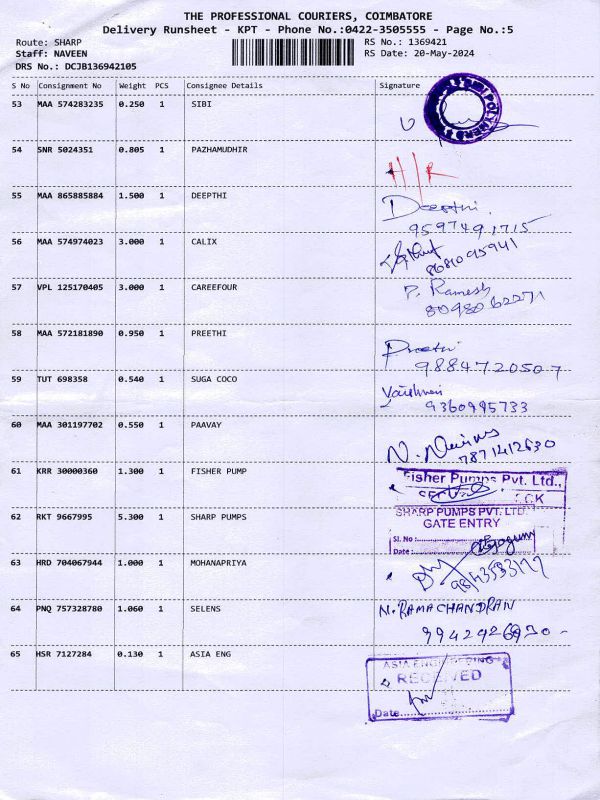 THE PROFESSIONAL COURIERS, COIMBATORE
Delivery Runsheet - KPT - Phone No.:0422-3505555 - Page No.:5
Route: SHARP RS No.: 1369421
Staff: NAVEEN RS Date: 20-May-2024
DRS No.: DCJB136942105
S No Consignment No Weight PCS Consignee Details Signature
53 MAA 574283235 0.250 1 SIBI
54 SNR 5024351 0.805 1 PAZHAMUDHIR
H/R
55 MAA 865885884 1.500 1 DEEPTHI Deepthi.
9597491715
56 MAA 574974023 3.000 1 CALIX
8681095941
57 VPL 125170405 3.000 1 CAREEFOUR P. Ramesh
8098062271
58 MAA 572181890 0.950 1 PREETHI Preethi
9884720507
59 TUT 698358 0.540 1 SUGA COCO Vaishnavi
9360995733
60 MAA 301197702 0.550 1 PAAVAY
7871412630
61 KRR 30000360 1.300 1 FISHER PUMP Fisher Pumps Pvt. Ltd.,
62 RKT 9667995 5.300 1 SHARP PUMPS SHARP PUMPS PVT. LTD
GATE ENTRY
Sl. No :
Date :
63 HRD 704067944 1.000 1 MOHANAPRIYA
64 PNQ 757328780 1.060 1 SELENS N. RAMACHANDRAN
9942426930
65 HSR 7127284 0.130 1 ASIA ENG ASIA ENGINEERING
RECEIVED
Date